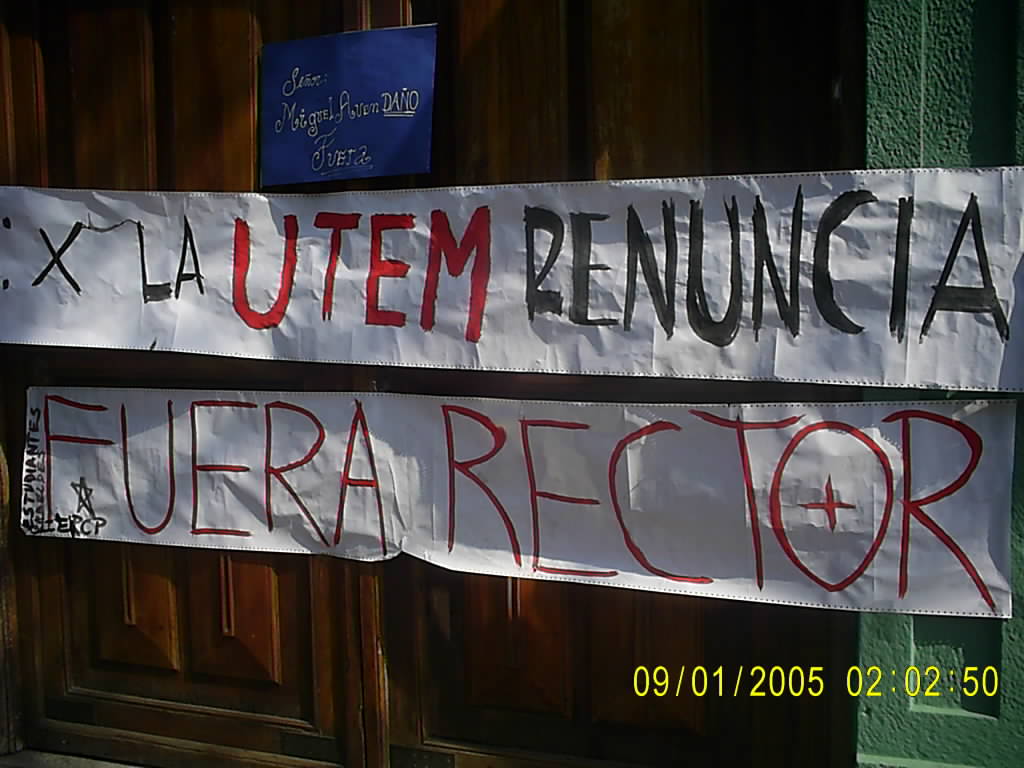 Señor:
Miguel Aven DAÑO
Fuera
: X LA UTEM RENUNCIA
FUERA RECTOR
ESTUDIANTES
09/01/2005 02:02:50